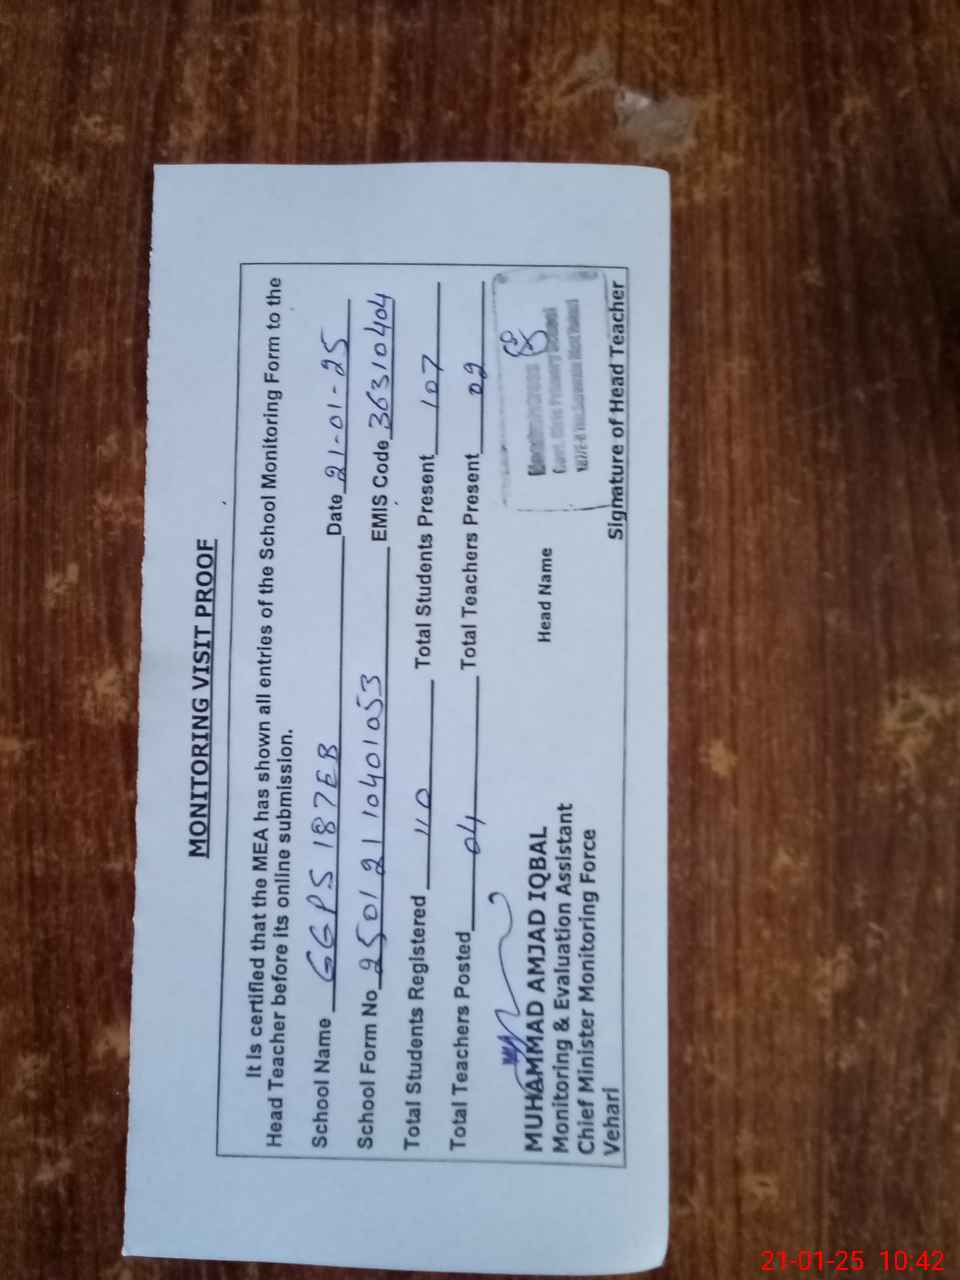 MONITORING VISIT PROOF
It is certified that the MEA has shown all entries of the School Monitoring Form to the
Head Teacher before its online submission.
School Name GGPS 187EB Date 21-01-25
School Form No 25012110401053 EMIS Code 36310404
Total Students Registered 110 Total Students Present 107
Total Teachers Posted 04 Total Teachers Present 02
MUHAMMAD AMJAD IQBAL
Monitoring & Evaluation Assistant
Chief Minister Monitoring Force
Vehari
Head Name
Signature of Head Teacher
21-01-25 10:42